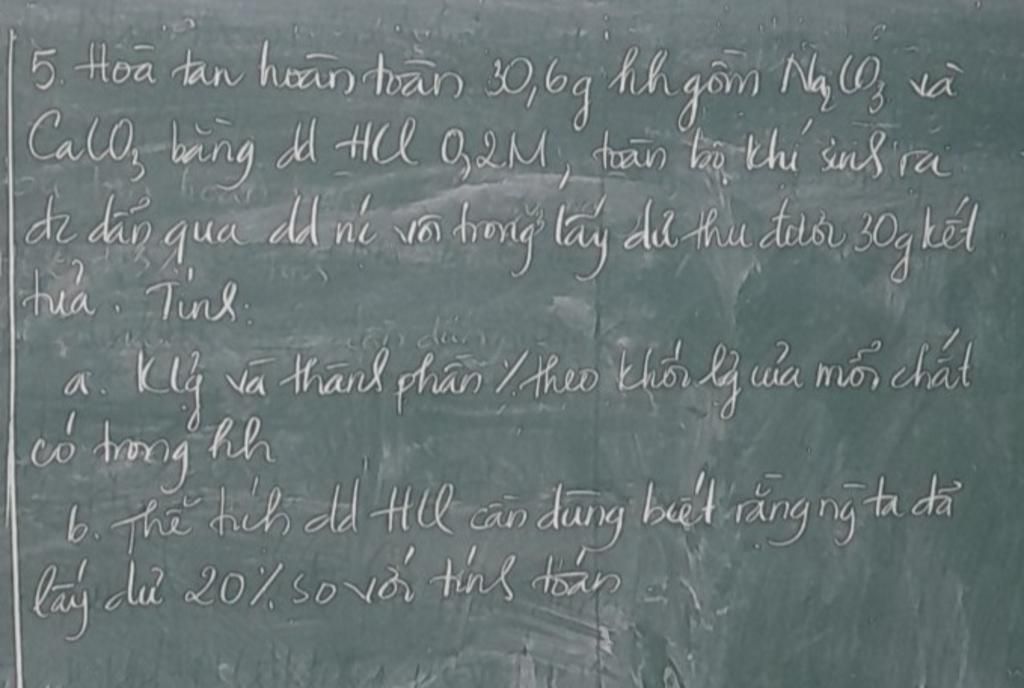 5. Hoà tan hoàn toàn 30,6g hh gồm Na₂CO₃ và
CaCO₃ bằng dd HCl 0,2M, toàn bộ khí sinh ra
đc dẫn qua dd nc vôi trong lấy dư thu được 30g kết
tủa. Tính:
a. Klg và thành phần % theo khối lg của mỗi chất
có trong hh
b. Thể tích dd HCl cần dùng biết rằng ng ta đã
lấy dư 20% so với tính toán.